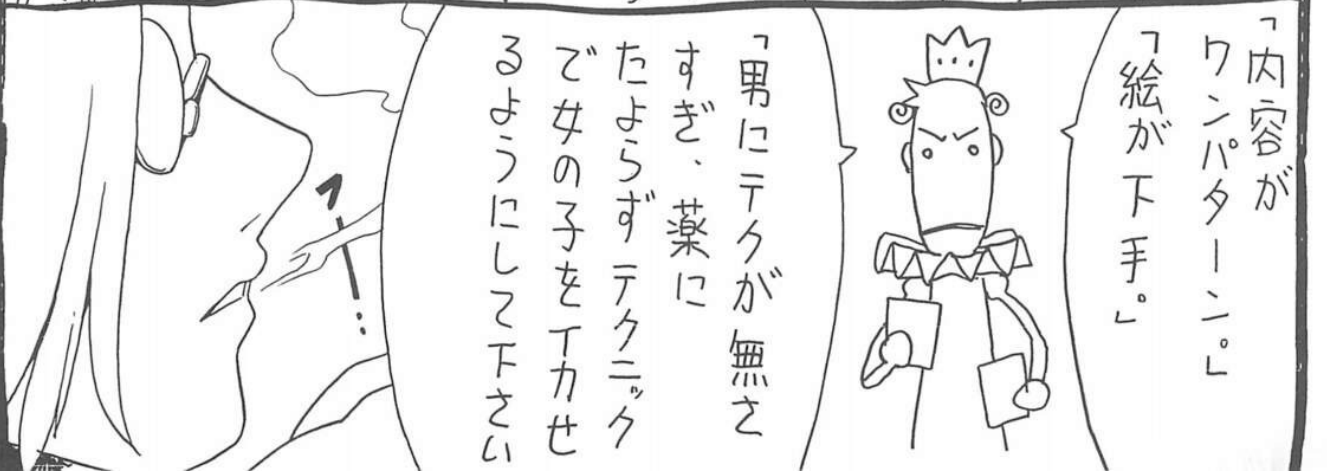 「内容が
ワンパターン。」
「絵が下手。」
「男にテクが無さ
すぎ、薬に
たよらずテクニック
で女の子をイカせ
るようにして下さい